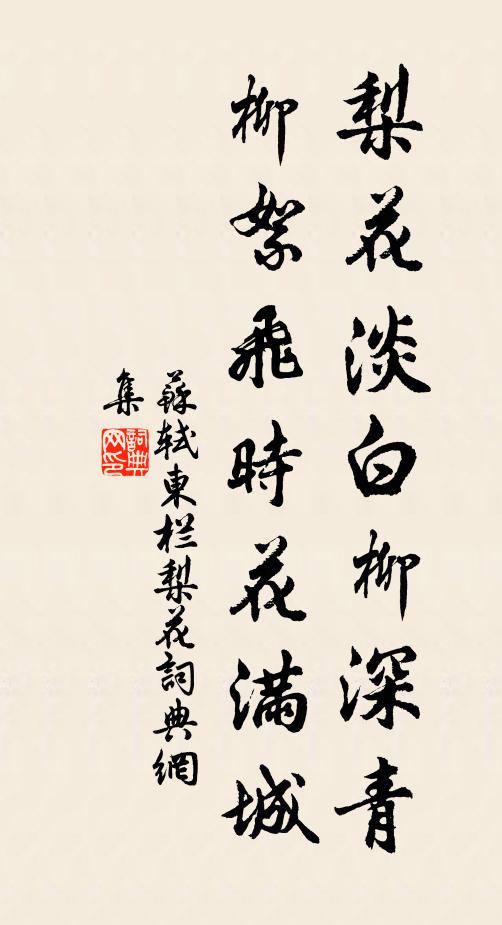 梨花淡白柳深青
柳絮飛時花滿城
蘇轼東栏梨花詞典網
集
詞典
网印